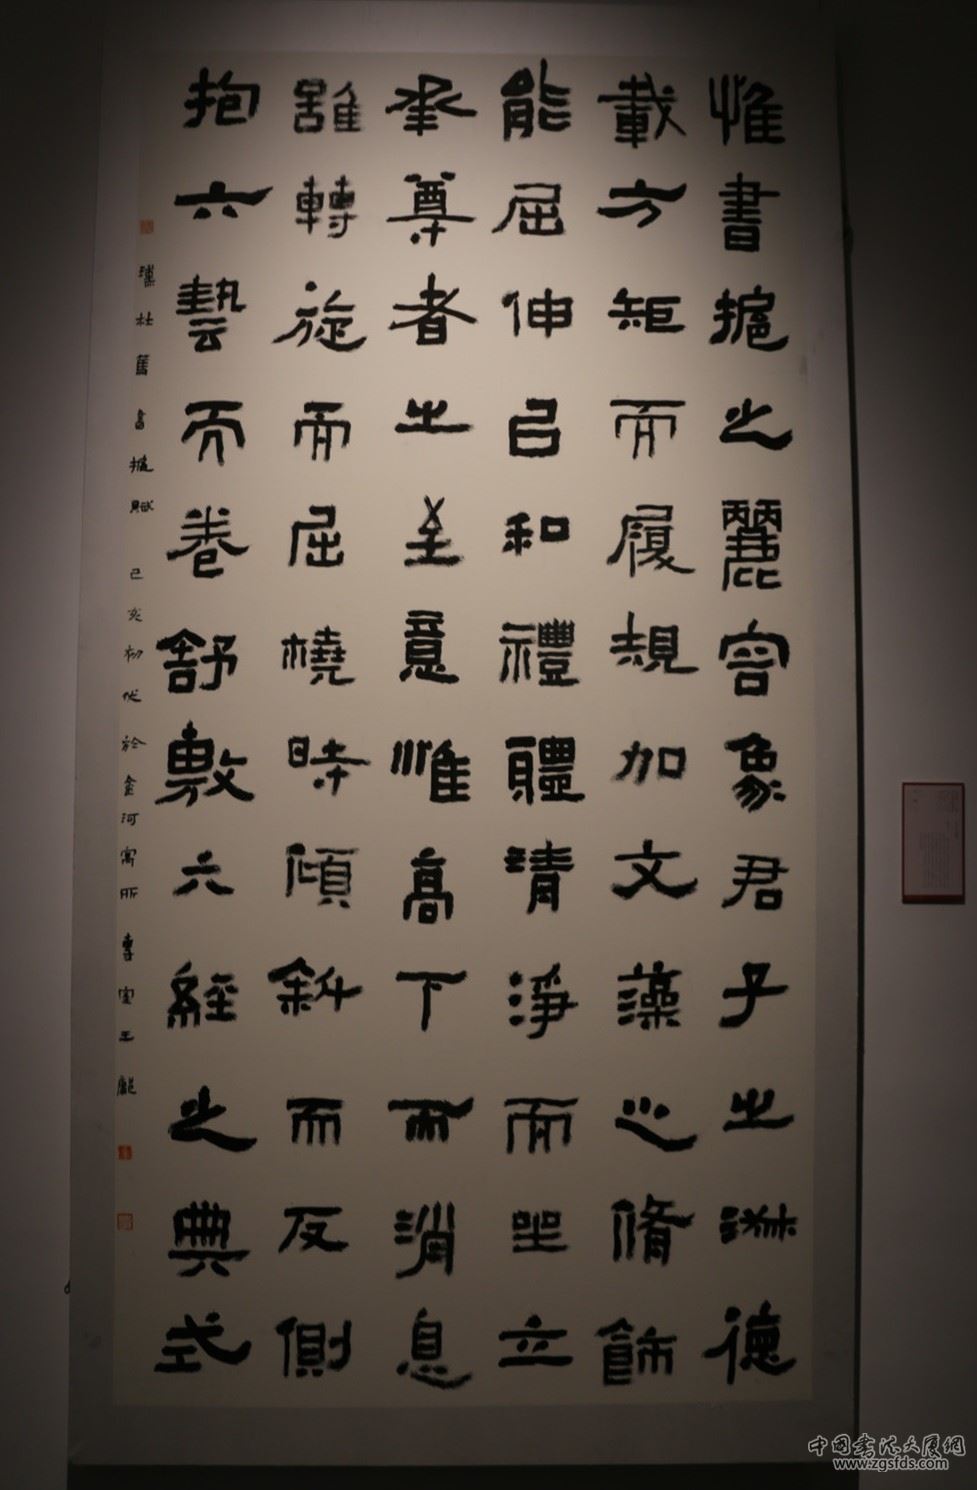 惟書攄之麗容象君子之淑德
載方矩而履規加文藻之脩飾
能屈伸以和禮體清淨而坐立
承尊者之至意惟高下而消息
雖轉旋而屈橈時傾斜而反側
抱六藝而卷舒敷六經之典式
漢杜篤書攄賦 己亥初伏於金河寓所 專室王龐
中国书法大厦网
www.zgsfds.com